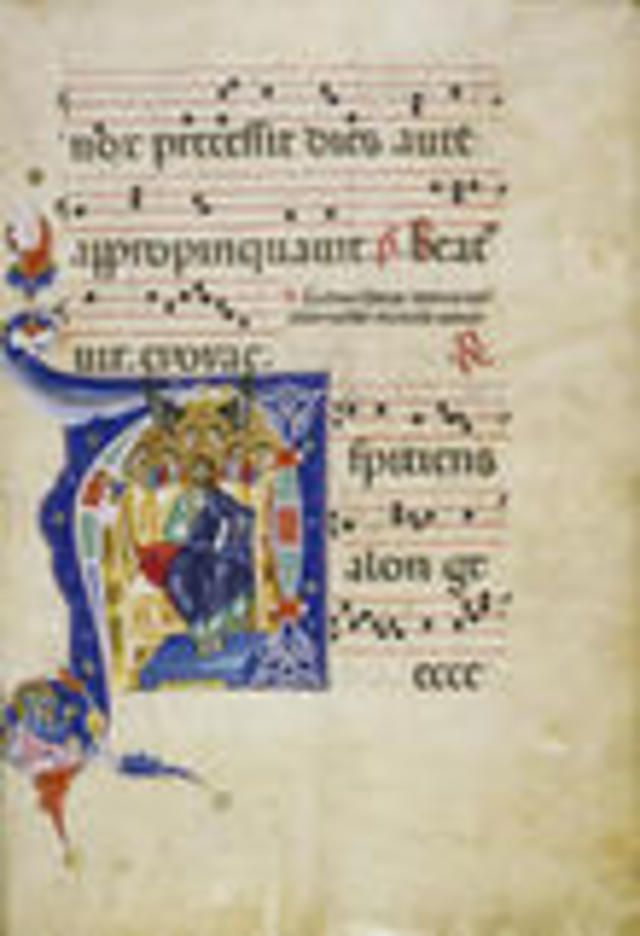 nox precessit dies aute
appropinquauit ℣ Beat
uir. evovae. ℟
spitiens
alon ge
ecce